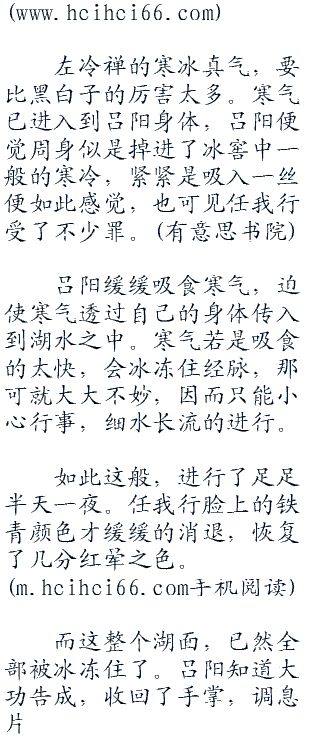 (www.hcihci66.com)
左冷禅的寒冰真气，要
比黑白子的厉害太多。寒气
已进入到吕阳身体，吕阳便
觉周身似是掉进了冰窖中一
般的寒冷，紧紧是吸入一丝
便如此感觉，也可见任我行
受了不少罪。(有意思书院)
吕阳缓缓吸食寒气，迫
使寒气透过自己的身体传入
到湖水之中。寒气若是吸食
的太快，会冰冻住经脉，那
可就大大不妙，因而只能小
心行事，细水长流的进行。
如此这般，进行了足足
半天一夜。任我行脸上的铁
青颜色才缓缓的消退，恢复
了几分红晕之色。
(m.hcihci66.com手机阅读)
而这整个湖面，已然全
部被冰冻住了。吕阳知道大
功告成，收回了手掌，调息
片